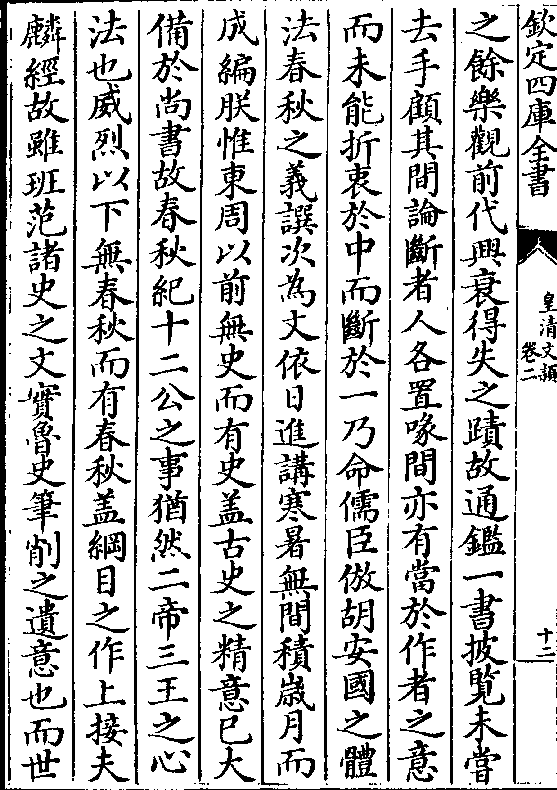 欽定四庫全書
皇清文類
卷二
十二
之餘樂觀前代興衰得失之蹟故通鑑一書披覧未嘗
去手顧其間論斷者人各置喙間亦有當於作者之意
而未能折衷於中而斷於一乃命儒臣倣胡安國之體
法春秋之義譔次為文依日進講寒暑無間積歲月而
成編朕惟東周以前無史而有史盖古史之精意已大
備於尚書故春秋紀十二公之事猶然二帝三王之心
法也威烈以下無春秋而有春秋盖綱目之作上接夫
麟經故雖班范諸史之文實魯史筆削之遺意也而世